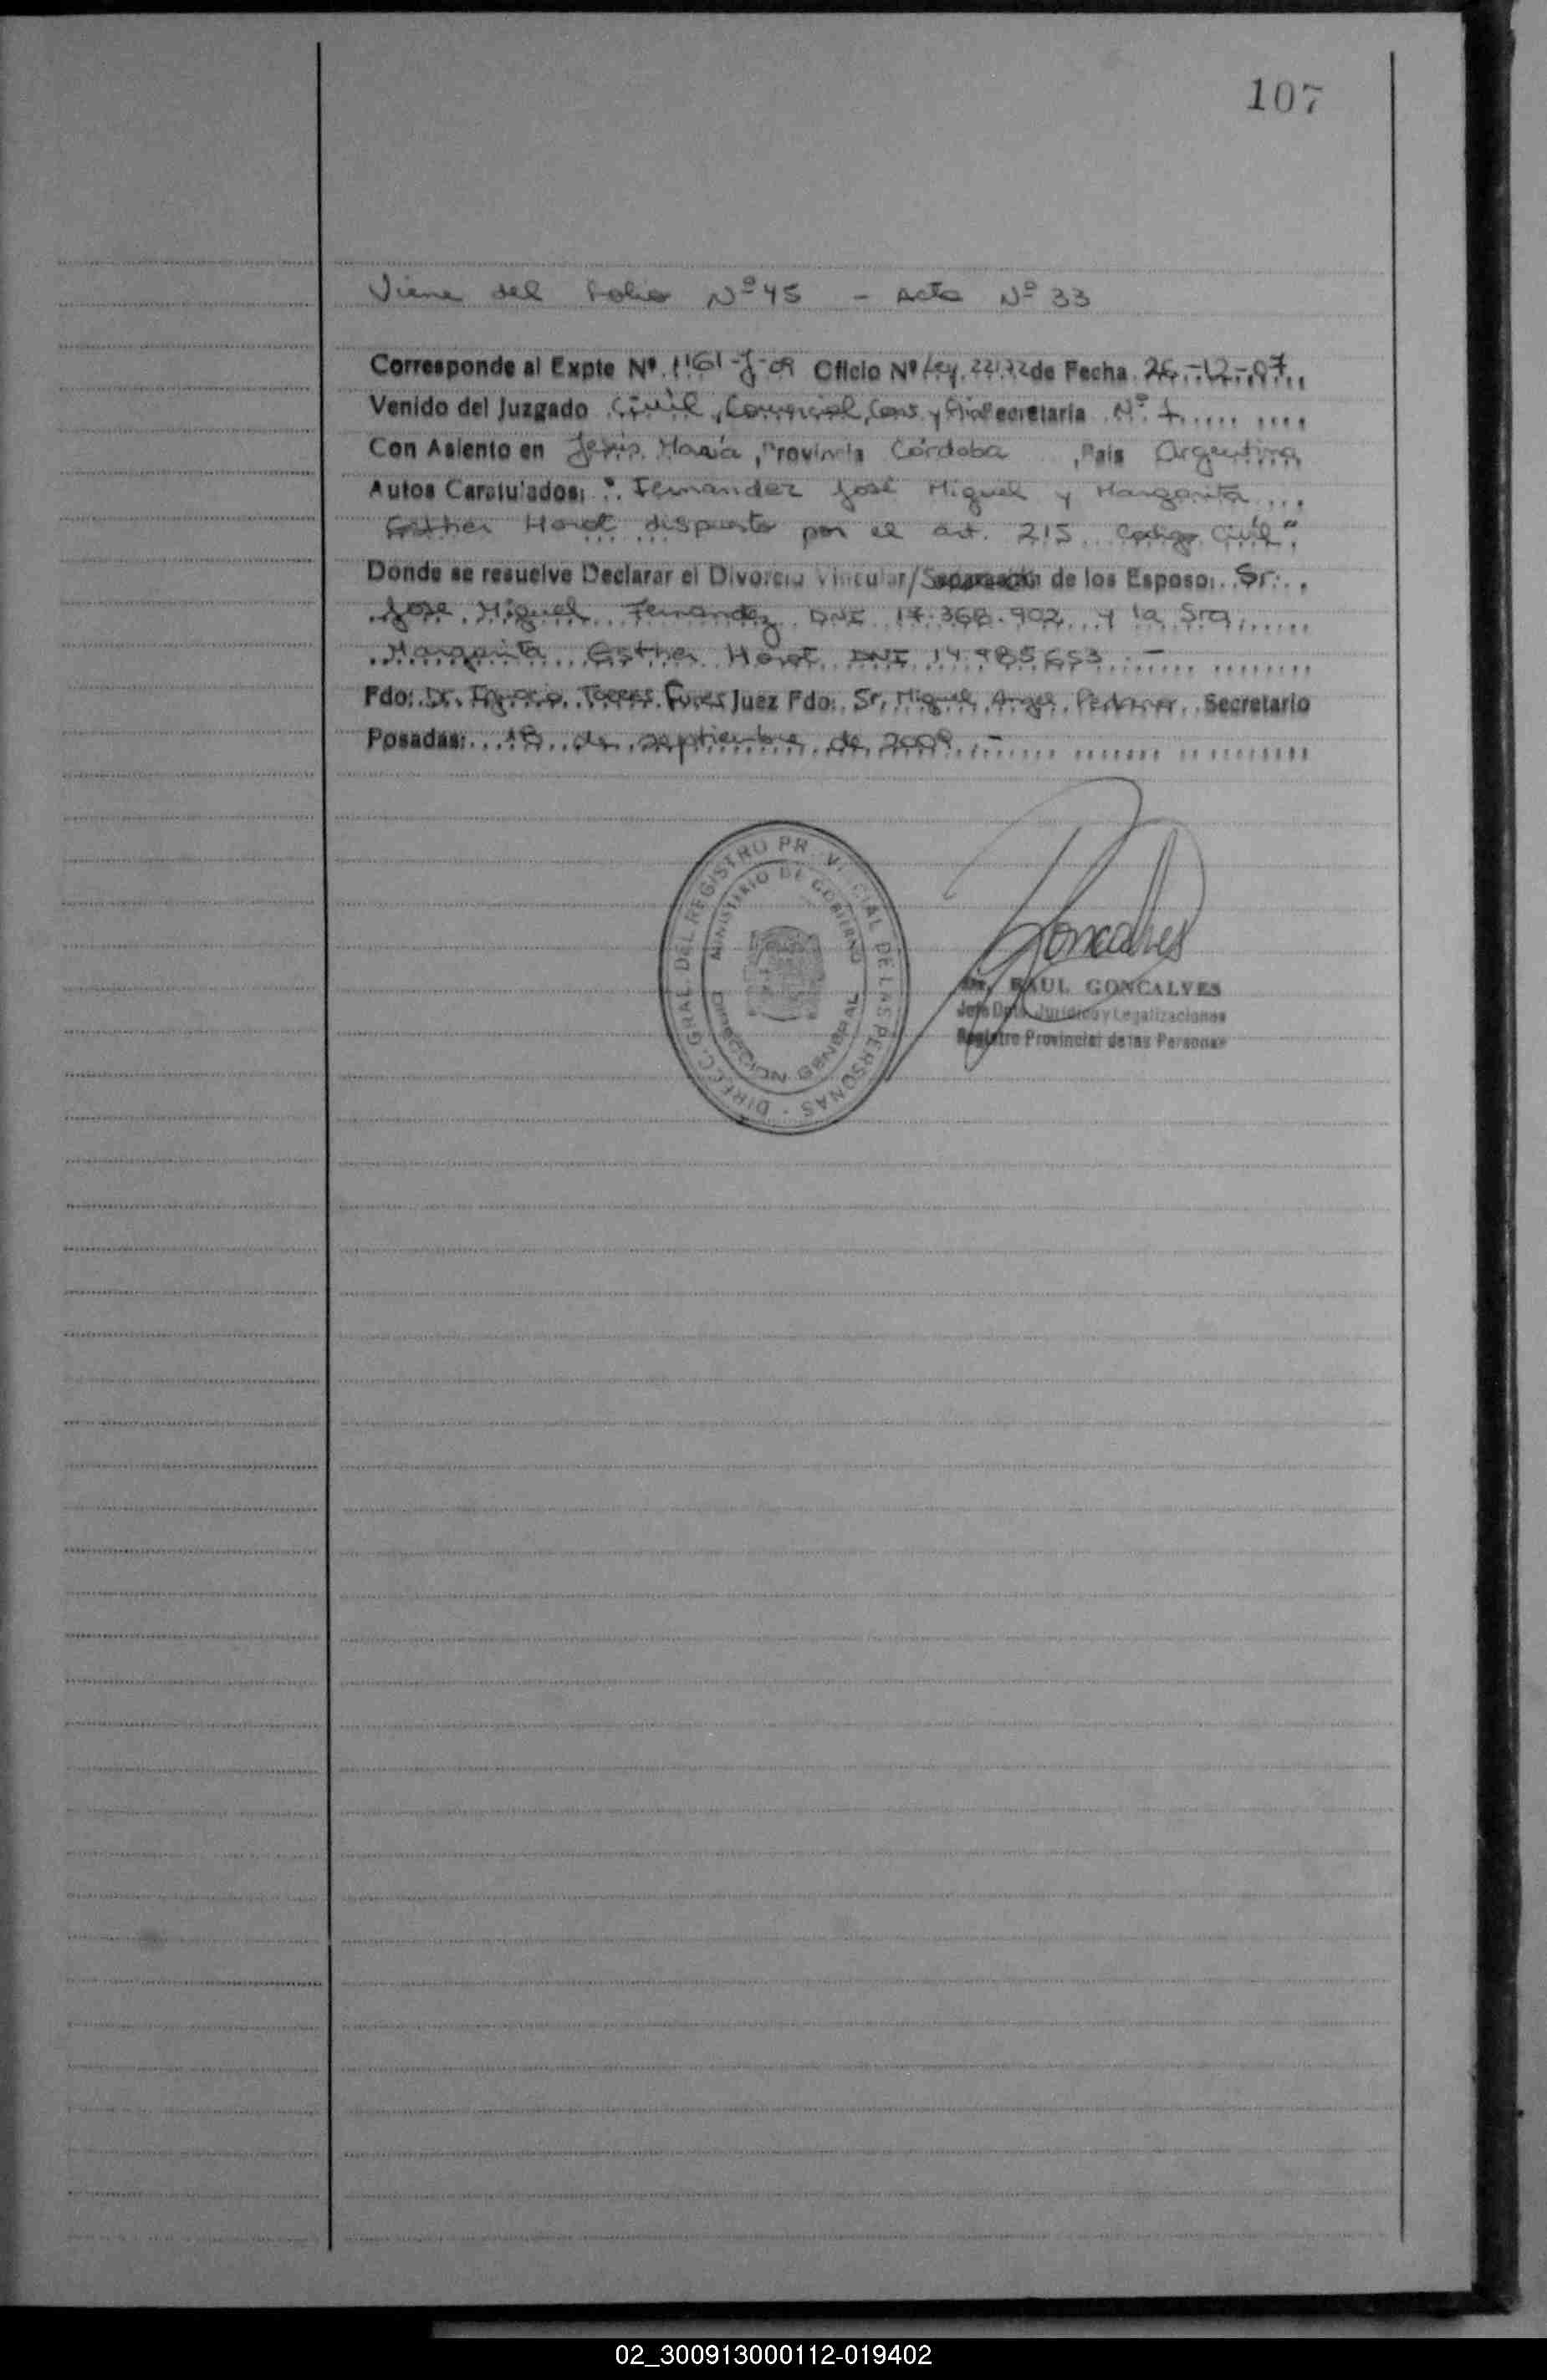 107
Viene del Folio Nº 45 - Acta Nº 33
Corresponde al Expte Nº 1161-J-09 Oficio Nº Ley 22172 de Fecha 26-12-07
Venido del Juzgado Civil, Comercial, Conc. y Flia Secretaria Nº
Con Asiento en Jesús María, Provincia Córdoba, Pais Argentina
Autos Caratulados: "Fernandez José Miguel y Margarita
Esther dispuesto por el art. 215 Codigo Civil"
Donde se resuelve Declarar el Divorcio Vincular/Separación de los Esposo: Sr.
Jose Miguel Fernandez DNI 17.368.902 y la Sra
Margarita Esther DNI 14.985653.-
Fdo: Dr. Ignacio Torres Funes Juez Fdo: Sr. Miguel Angel Secretario
Posadas: 18 de septiembre de 2009.-
DIRECC. GRAL. DEL REGISTRO PROVINCIAL DE LAS PERSONAS
MINISTERIO DE GOBIERNO
DIRECCION GENERAL
Goncalves
Dr. RAUL GONCALVES
Jefe Dpto. Jurídico y Legalizaciones
Registro Provincial de las Personas
02_300913000112-019402